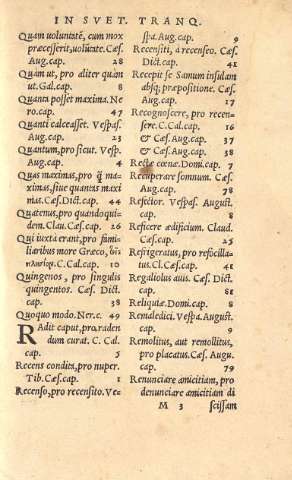 IN SVET. TRANQ.
Quam voluntatē, cum mox
præcesserit, voluisse. Cæs.
Aug. cap. 28
Quàm ut, pro aliter quàm
ut. Gal. cap. 8
Quanta posset maxima. Ne
ro. cap. 47
Quanti calceasset. Vespas.
Aug. cap. 23
Quantum, pro sicut. Vesp.
Aug. cap. 4
Quas maximas, pro q̃ ma
ximas, siue quantas maxi
mas. Cæs. Dict. cap. 44
Quatenus, pro quandoqui-
dem. Clau. Cæs. cap. 26
Qui iuxta erant, pro fami-
liaribus more Græco,
C. Cal. cap. 10
Quingenos, pro singulis
quingentos. Cæs. Dict.
cap. 38
Quoquo modo. Ner. c. 49
Radit caput, pro, raden
dum curat. C. Cal.
cap. 5
Recens condita, pro nuper.
Tib. Cæs. cap. 1
Recenso, pro recensito. Ve-
spa. Aug. cap. 9
Recensiti, à recenseo. Cæs.
Dict. cap. 41
Recepit se Samum insulam
absq; præpositione. Cæs.
Aug. cap. 17
Recognoscere, pro recen-
sere. C. Cal. cap. 16
& Cæs. Aug. cap. 37
& Cæs. Aug. cap. 38
Rectæ cœnæ. Domi. cap. 7
Recuperare somnum. Cæs.
Aug. cap. 78
Refectior. Vespas. August.
cap. 8
Reficere ædificium. Claud.
Cæs. cap. 25
Refrigeratus, pro refocilla-
tus. Cl. Cæs. cap. 41
Regaliolus auis. Cæs. Dict.
cap. 81
Reliquiæ. Domi. cap. 8
Remaledici. Vespa. August.
cap. 9
Remolitus, aut remollitus,
pro placatus. Cæs. Augu.
cap. 79
Renunciare amicitiam, pro
denunciare amicitiam di
M 3 scissam